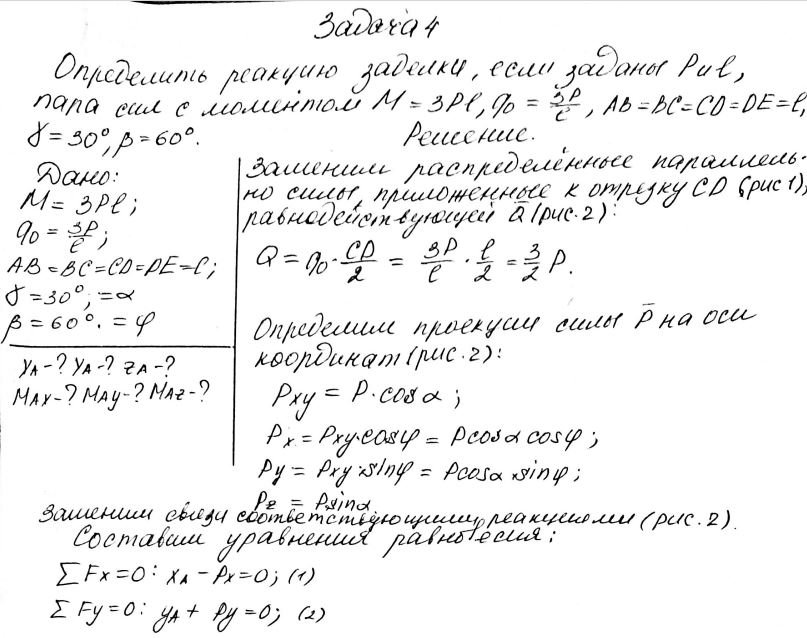 Задача 4
Определить реакцию заделки, если заданы P и l,
пара сил с моментом M = 3Pl, q₀ = 3P/l, AB=BC=CD=DE=l,
γ=30°, β=60°.
Решение.
Дано:
M = 3Pl;
q₀ = 3P/l;
AB=BC=CD=DE=l;
γ=30°, =α
β=60°. =φ
YA-? YA-? ZA-?
MAX-? MAY-? MAZ-?
Заменим распределённые параллель-
но силы, приложенные к отрезку CD (рис 1),
равнодействующей Q̄ (рис. 2):
Q = q₀·CD/2 = 3P/l · l/2 = 3/2 P.
Определим проекции силы P̄ на оси
координат (рис. 2):
Pxy = P·cosα;
Px = Pxy·cosφ = Pcosα cosφ;
Py = Pxy·sinφ = Pcosα·sinφ;
Pz = Psinα
Заменим связи соответствующими реакциями (рис. 2).
Составим уравнения равновесия:
∑Fx=0: XA - Px=0; (1)
∑Fy=0: YA + Py=0; (2)